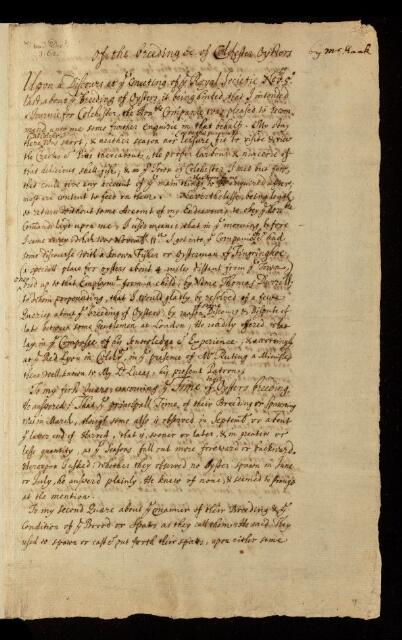 Of the breeding &c of Colchester Oysters
by Mr Haak
Upon a Discours at yͤ meeting of yͤ Royal Societie Nov. 5ͭ
last about yͤ Breeding of Oysters, it being hinted, that I intended
a Journie for Colchester, the Honͬ Companie was pleased to recom
mend unto me some further Enquirie in that behalf. My stay
there was short, & neither season nor Leisure fit to visite & view
the Creeks & Pitts thereabout, the proper harbour & nurcerie of
that delicious shell-fish; & in yͤ Town of Colchester I met but few,
that could give any account of yͤ main things to be enquired after,
most are content to feed on them. Nevertheless being loath
to return without some Account of my Endeavour to obey yͤ Honͬ
Commands layt upon me; I used meanes, that in yͤ morning, before
I came away which was Novemb. I got into yͤ Companie & had
some discourse with a known Fisher or Oysterman of Fingringhoe
(a speciall place for oysters about 4 miles distant from yͤ Town,
bred up at that Employmͭ from a child, by Name Thomas
to whom propounding, that I would gladly be resolved of a few
Queries about yͤ breeding of Oysters, by reason of some Discours & Dispute of
late between some Gentlemen at London; He readily offered what
lay in yͤ Compasse of his Knowledge & Experience; & accordingly
at yͤ Red Lyon in Colchͬ, in yͤ presence of Mͬ Ruting a Minister
there well known to My Lͩ Lucas, his present Patron.
To my first Quaere concerning yͤ Time of Oysters breeding,
He answered; That yͤ principall Time of their Breeding or spawning
was in March, though some also is observed in Septemb. or about
yͤ latter end of Harvest, that is, sooner or later, & in greater or
less quantity, as yͤ Seasons fall out more foreward or backward.
Whereupon I asked whether they observed no Oyster spawn in June
or July, he answered plainly, He knew of none, & seemed to strange
at the mention.
To my second Quaere about yͤ manner of their Breeding & yͤ
Condition of yͤ Brood or Spatts as they call them: He said They
used to spawn or cast & put forth their spatts, upon either some